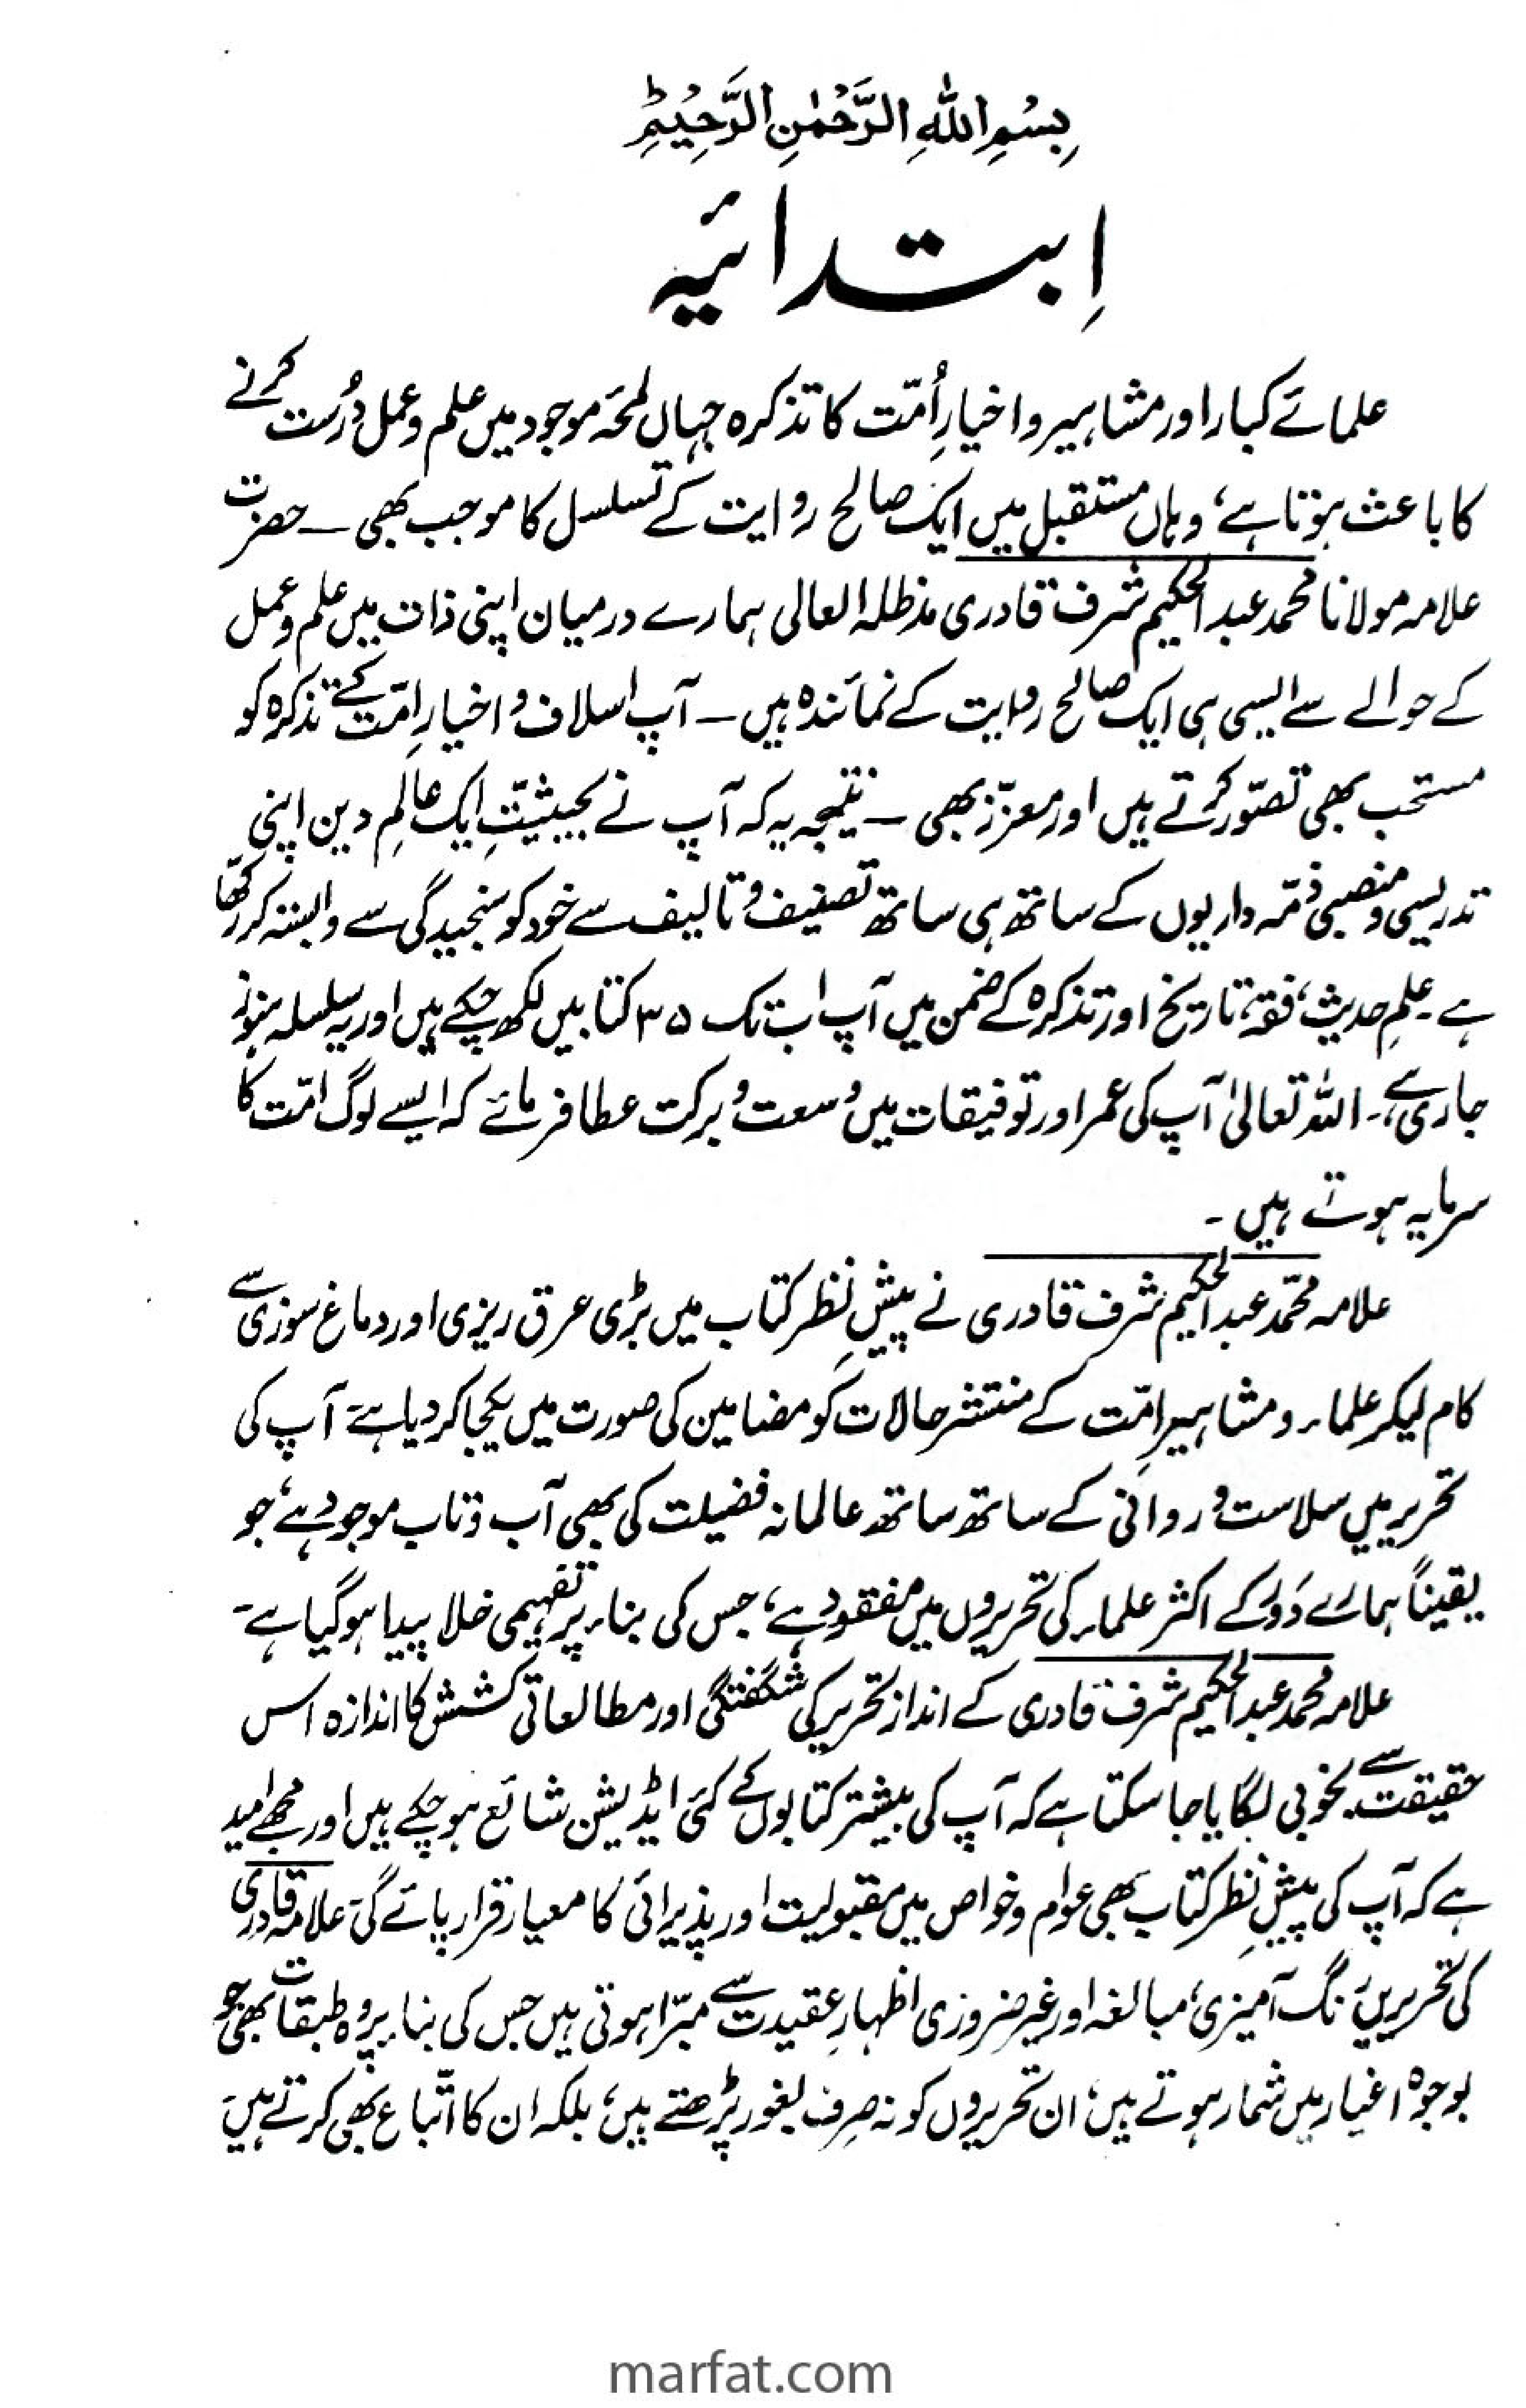 بِسْمِ اللهِ الرَّحْمٰنِ الرَّحِيْمِ ط
اِبتدائیہ
علمائے کبار اور مشاہیر و اخیارِ اُمّت کا تذکرہ جہاں لمحۂ موجود میں علم و عمل دُرست کرنے
کا باعث ہوتا ہے، وہاں مستقبل میں ایک صالح روایت کے تسلسل کا موجب بھی ۔ حضرت
علامہ مولانا محمد عبدالحکیم شرف قادری مدظلہ العالی ہمارے درمیان اپنی ذات میں علم و عمل
کے حوالے سے ایسی ہی ایک صالح روایت کے نمائندہ ہیں ۔ آپ اسلاف و اخیارِ امّت کے تذکرہ کو
مستحب بھی تصوّر کرتے ہیں اور معزّز بھی ۔ نتیجہ یہ کہ آپ نے بحیثیّتِ ایک عالمِ دین اپنی
تدریسی و منصبی ذمّہ داریوں کے ساتھ ہی ساتھ تصنیف و تالیف سے خود کو سنجیدگی سے وابستہ کر رکھّا
ہے ۔ علمِ حدیث، فقہ، تاریخ اور تذکرہ کے ضمن میں آپ اب تک ۳۵ کتابیں لکھ چکے ہیں اور یہ سلسلہ ہنوز
جاری ہے۔ اللہ تعالیٰ آپ کی عمر اور توفیقات میں وسعت و برکت عطا فرمائے کہ ایسے لوگ امّت کا
سرمایہ ہوتے ہیں ۔
علامہ محمّد عبدالحکیم شرف قادری نے پیشِ نظر کتاب میں بڑی عرق ریزی اور دماغ سوزی سے
کام لیکر علماء و مشاہیرِ امّت کے منتشر حالات کو مضامین کی صورت میں یکجا کر دیا ہے۔ آپ کی
تحریر میں سلاست و روانی کے ساتھ ساتھ عالمانہ فضیلت کی بھی آب و تاب موجود ہے، جو
یقیناً ہمارے دَور کے اکثر علماء کی تحریروں میں مفقود ہے، جس کی بناء پر تفہیمی خلا پیدا ہو گیا ہے۔
علامہ محمد عبدالحکیم شرف قادری کے اندازِ تحریر کی شگفتگی اور مطالعاتی کشش کا اندازہ اس
حقیقت سے بخوبی لگایا جا سکتا ہے کہ آپ کی بیشتر کتابوں کے کئی ایڈیشن شائع ہو چکے ہیں اور مجھے امید
ہے کہ آپ کی پیشِ نظر کتاب بھی عوام و خواص میں مقبولیت اور پذیرائی کا معیار قرار پائے گی۔ علامہ قادری
کی تحریریں رنگ آمیزی، مبالغہ اور غیر ضروری اظہارِ عقیدت سے مبرّا ہوتی ہیں جس کی بناء پر وہ طبقات بھی جو
بوجوہ اغیار میں شمار ہوتے ہیں، ان تحریروں کو نہ صرف بغور پڑھتے ہیں، بلکہ ان کا اتّباع بھی کرتے ہیں۔
marfat.com